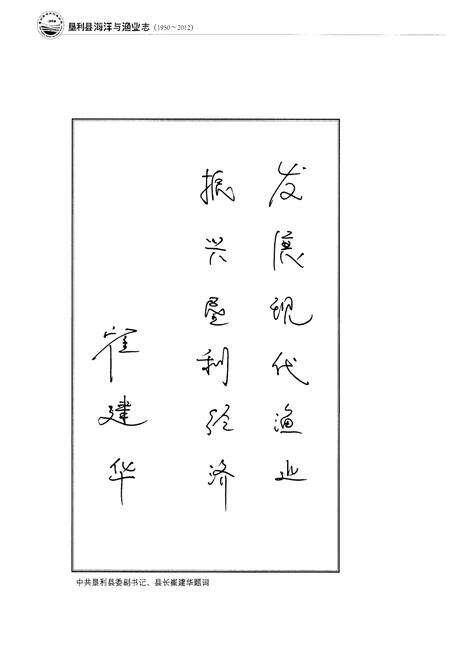 垦利县海洋与渔业志（1950～2012）
发展现代渔业
振兴垦利经济
崔建华
中共垦利县委副书记、县长崔建华题词